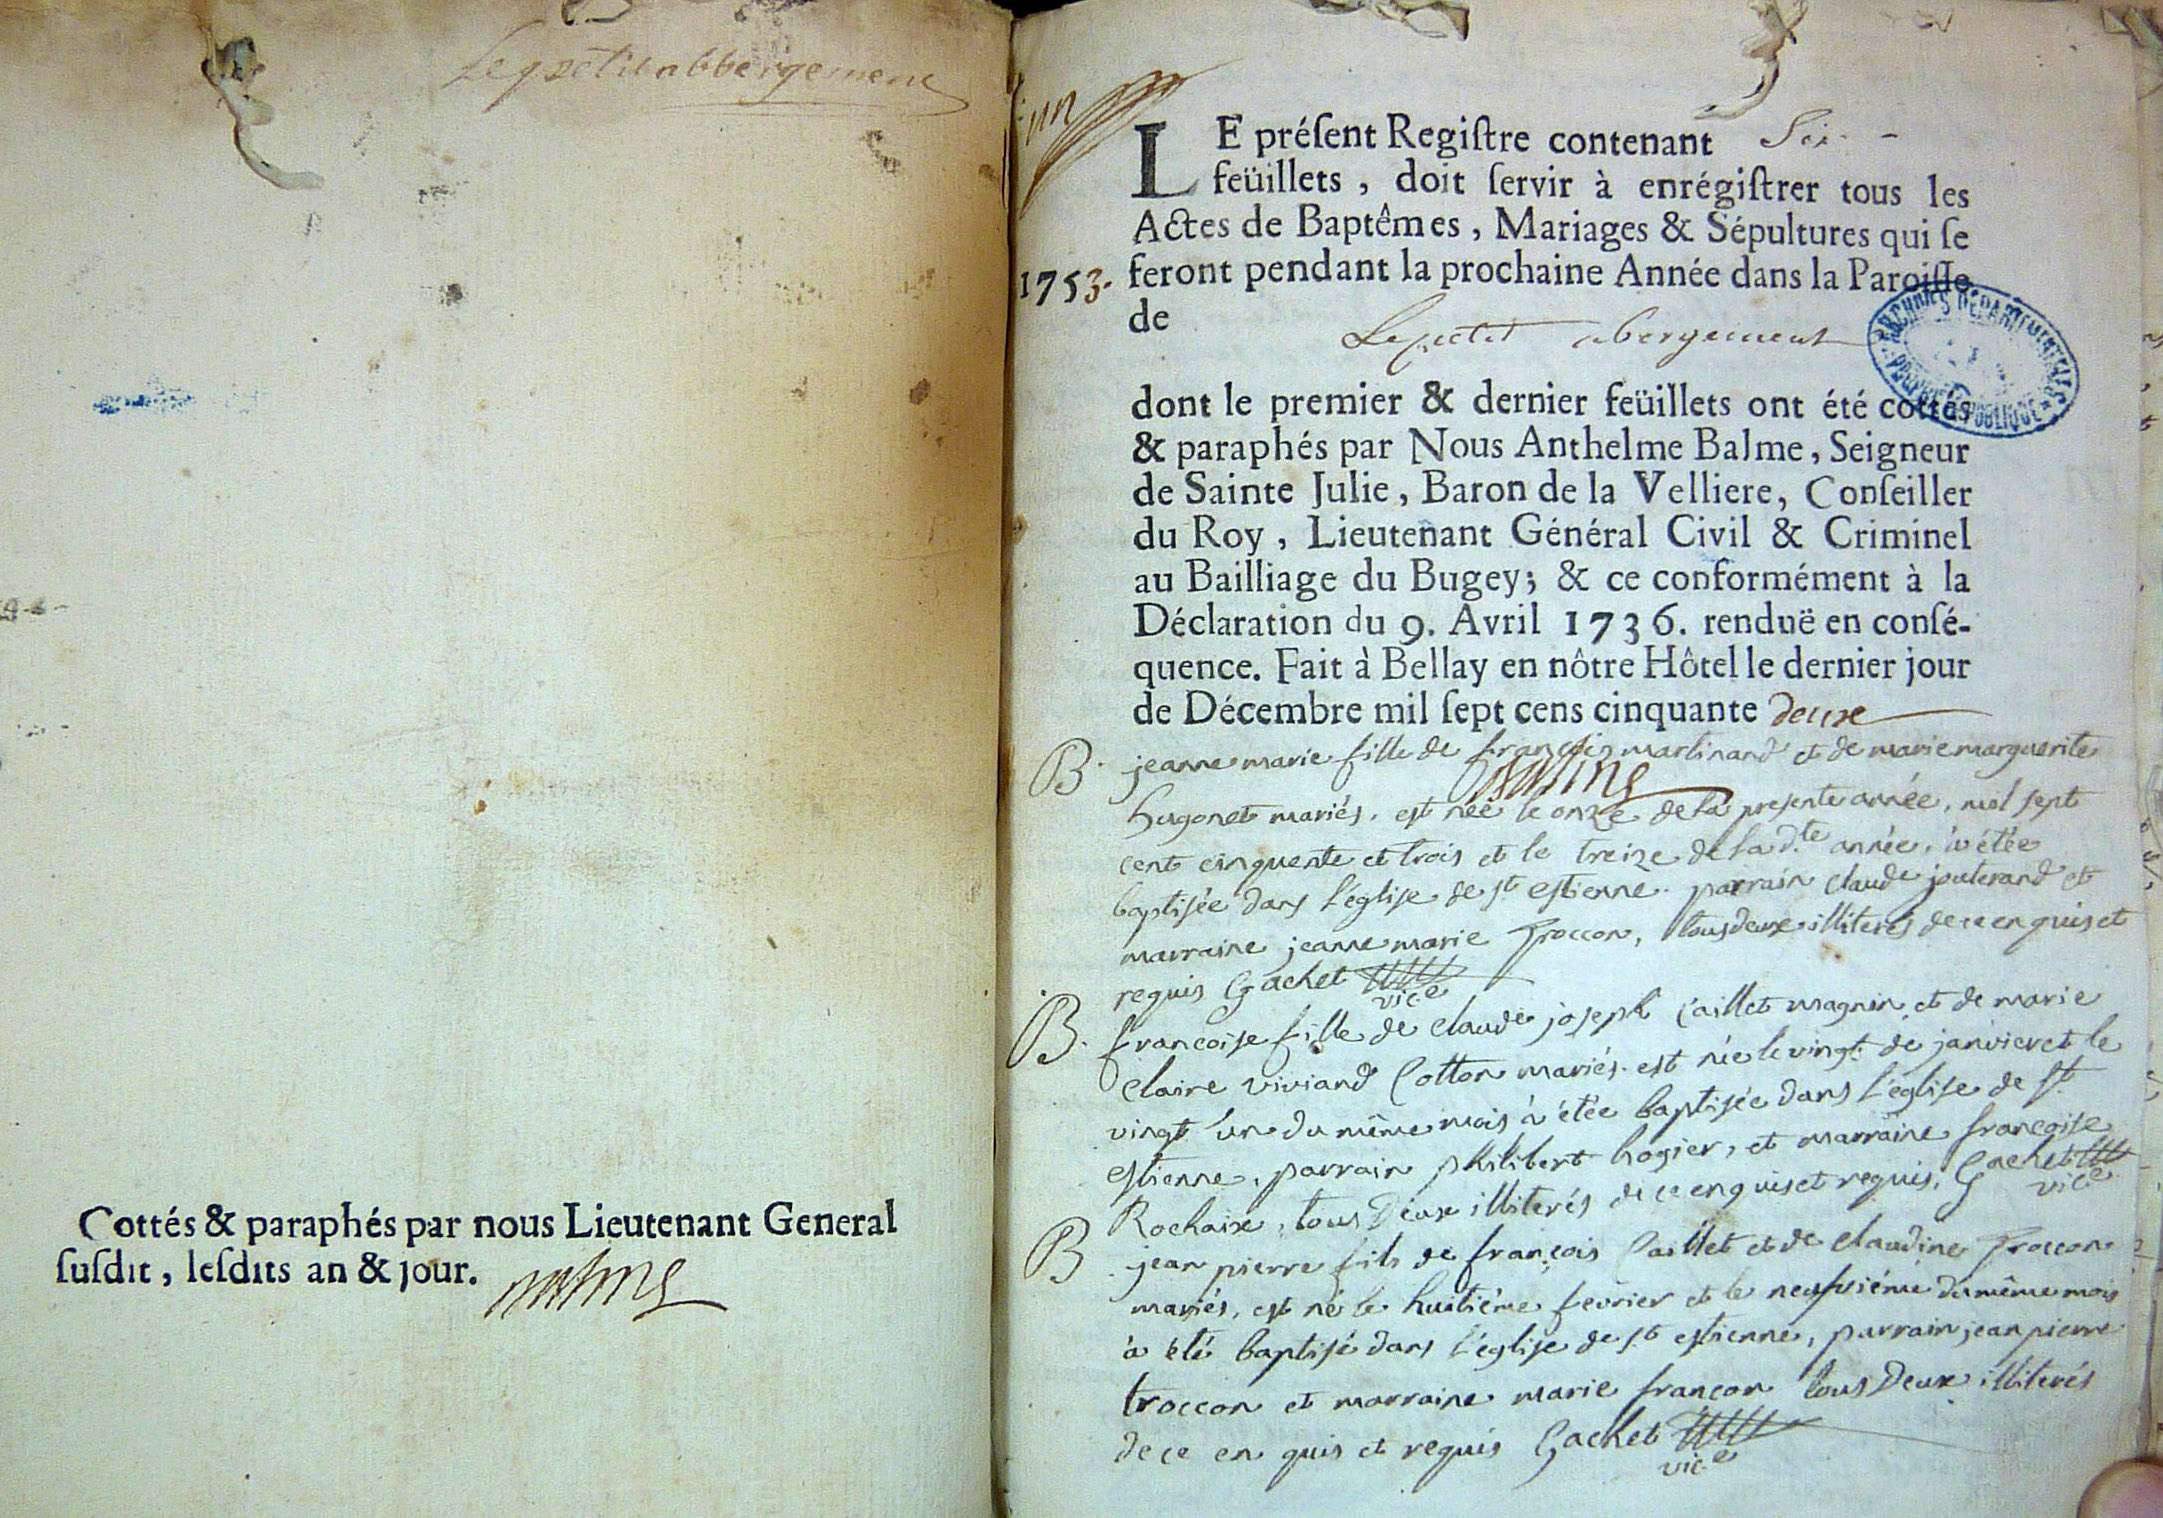 Le petit abbergement
Cottés & paraphés par nous Lieutenant General
ſuſdit, leſdits an & jour.
Balme
un
LE préſent Regiſtre contenant Six
feüillets, doit ſervir à enrégiſtrer tous les
Actes de Baptêmes, Mariages & Sépultures qui ſe
1753. feront pendant la prochaine Année dans la Paroiſſe
de
Le petit abergement
ARCHIVES DEPARTEMENTALES
PROPRIETE PUBLIQUE
dont le premier & dernier feüillets ont été cottés
& paraphés par Nous Anthelme Balme, Seigneur
de Sainte Julie, Baron de la Velliere, Conſeiller
du Roy, Lieutenant Général Civil & Criminel
au Bailliage du Bugey; & ce conformément à la
Déclaration du 9. Avril 1736. renduë en conſé-
quence. Fait à Bellay en nôtre Hôtel le dernier jour
de Décembre mil ſept cens cinquante deux
Balme
B. jeanne marie fille de françois martinand et de marie marguerite
hugonet mariés. est née le onze de la presente année, mil sept
cent cinquente et trois et le treize de la d.te année, à étée
baptisée dans l'église de st estienne. parrain claude jouterand et
marraine jeanne marie Troccon, tous deux illiterés de ce enquis et
requis Gachet vice
B. francoise fille de claude joseph Caillet magnin et de marie
claire viviand Cotton mariés. est née le vingt de janvier et le
vingt un du même mois à étée baptisée dans l'église de st
estienne, parrain philibert hogier, et marraine francoise
Rochaix, tous deux illiterés de ce enquis et requis, Gachet vice
B jean pierre fils de françois Caillet et de claudine Troccon
mariés, est né le huitiéme fevrier et le neufviéme du même mois
à été baptisé dans l'église de st estienne, parrain jean pierre
troccon et marraine marie françon tous deux illiterés
de ce en quis et requis Gachet
vice